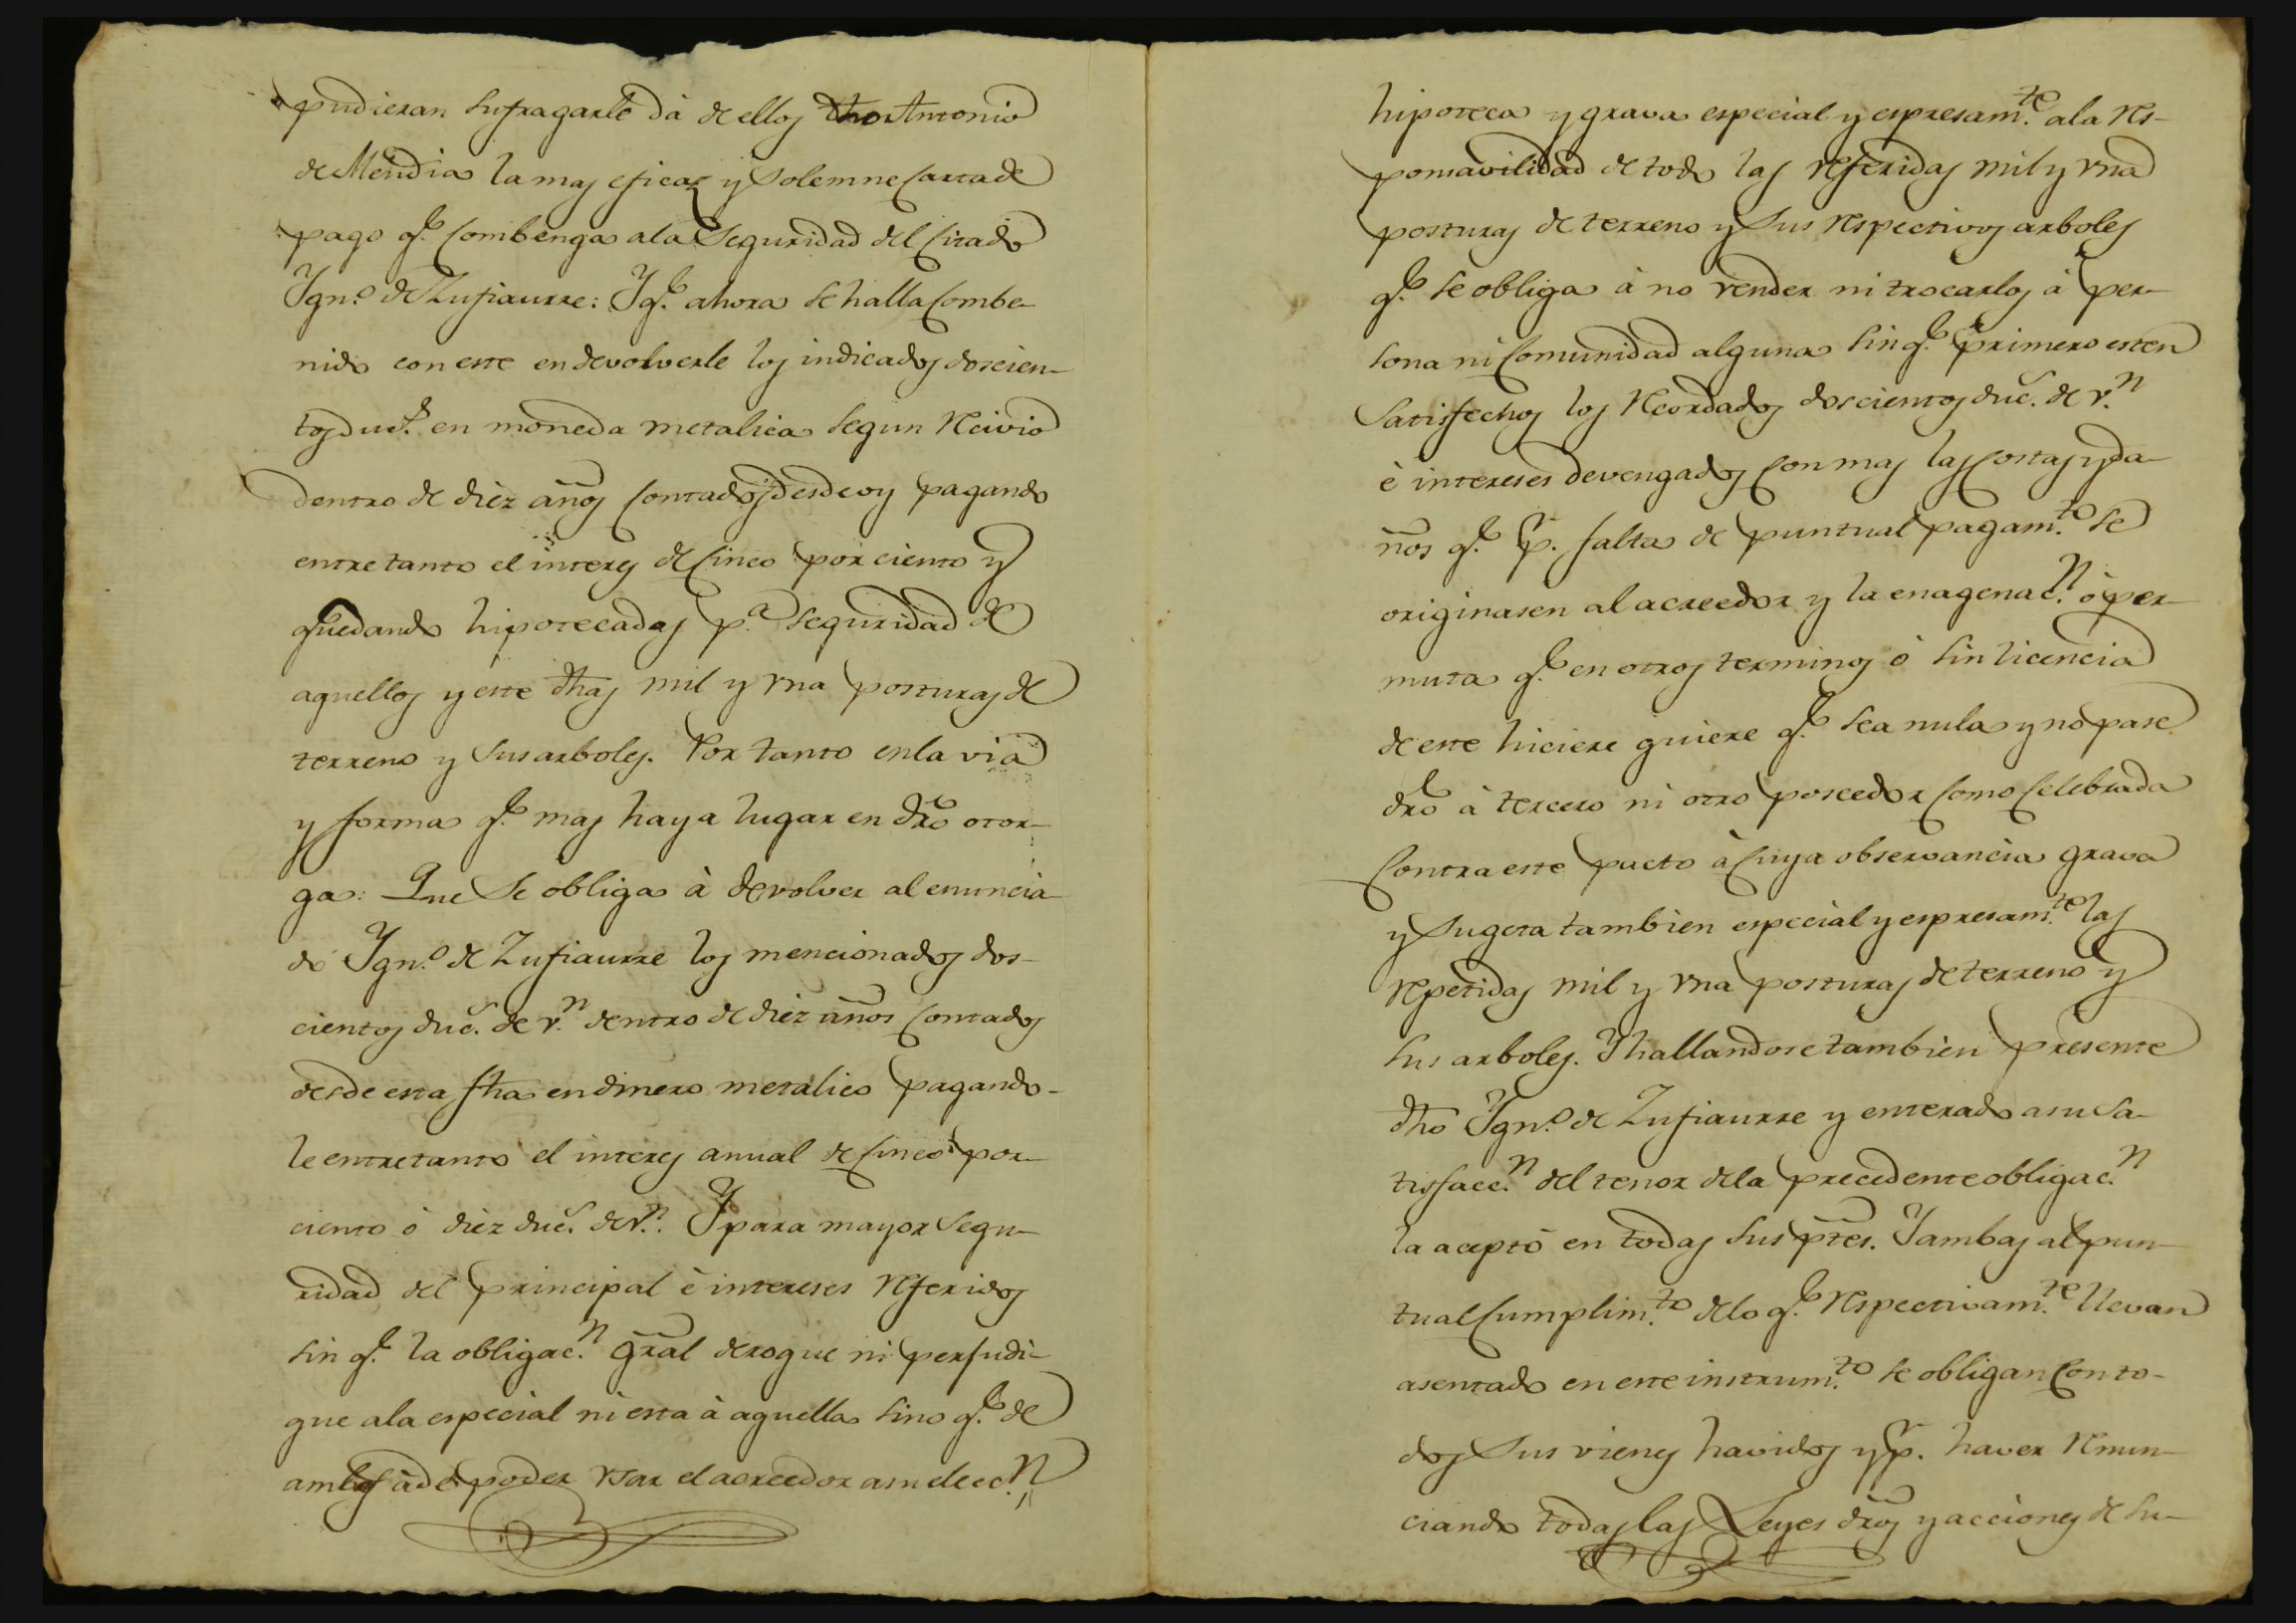 pudieran sufragarle dá de ellos dho Antonio
de Mendia la mas eficaz y solemne carta de
pago q.e combenga a la seguridad del citado
Ygn.o de Zufiaurre: Y q.e ahora se halla combe-
nido con este en devolverle los indicados doscien-
tos duc.s en moneda metalica segun recivio
dentro de diez años contados desde oy pagando
entretanto el interes de cinco por ciento y
quedando hipotecadas p.a seguridad de
aquellos y este dhas mil y una posturas de
terreno y sus arboles. Por tanto en la via
y forma q.e mas haya lugar en dro otor-
ga: Que se obliga à devolver al enuncia-
do Ygn.o de Zufiaurre los mencionados dos-
cientos duc.s de v.n dentro de diez años contados
desde esta fha en dinero metalico pagando-
le entretanto el interes anual de cinco por
ciento ò diez duc.s de v.n. Y para mayor segu-
ridad del principal è intereses referidos
sin q.e la obligac.n gral derogue ni perjudi-
que a la especial ni esta à aquella sino q.e de
ambas ade poder usar el acreedor a su elecc.n
hipoteca y grava especial y espresam.te a la res-
ponsavilidad de todo las referidas mil y una
posturas de terreno y sus respectivos arboles
q.e se obliga à no vender ni trocarlos à per-
sona ni comunidad alguna sin q.e primero esten
satisfechos los recordados doscientos duc.s de v.n
è intereses devengados con mas las costas y da-
ños q.e p.r falta de puntual pagam.to se
originasen al acreedor y la enagenac.n ò per-
muta q.e en otros terminos ò sin licencia
de este hiciere quiere q.e sea nula y no pase
dro à tercero ni otro poseedor como celebrada
contra este pacto à cuya observancia grava
y sugeta tambien especial y espresam.te las
repetidas mil y una posturas de terreno y
sus arboles. Y hallandose tambien presente
dho Ygn.o de Zufiaurre y enterado a su sa-
tisfacc.n del tenor de la precedente obligac.n
la aceptò en todas sus ptes. Y ambas al pun-
tual cumplim.to de lo q.e respectivam.te llevan
asentado en este instrum.to se obligan con to-
dos sus vienes havidos y p.r haver renun-
ciando todas las Leyes dros y acciones de su-